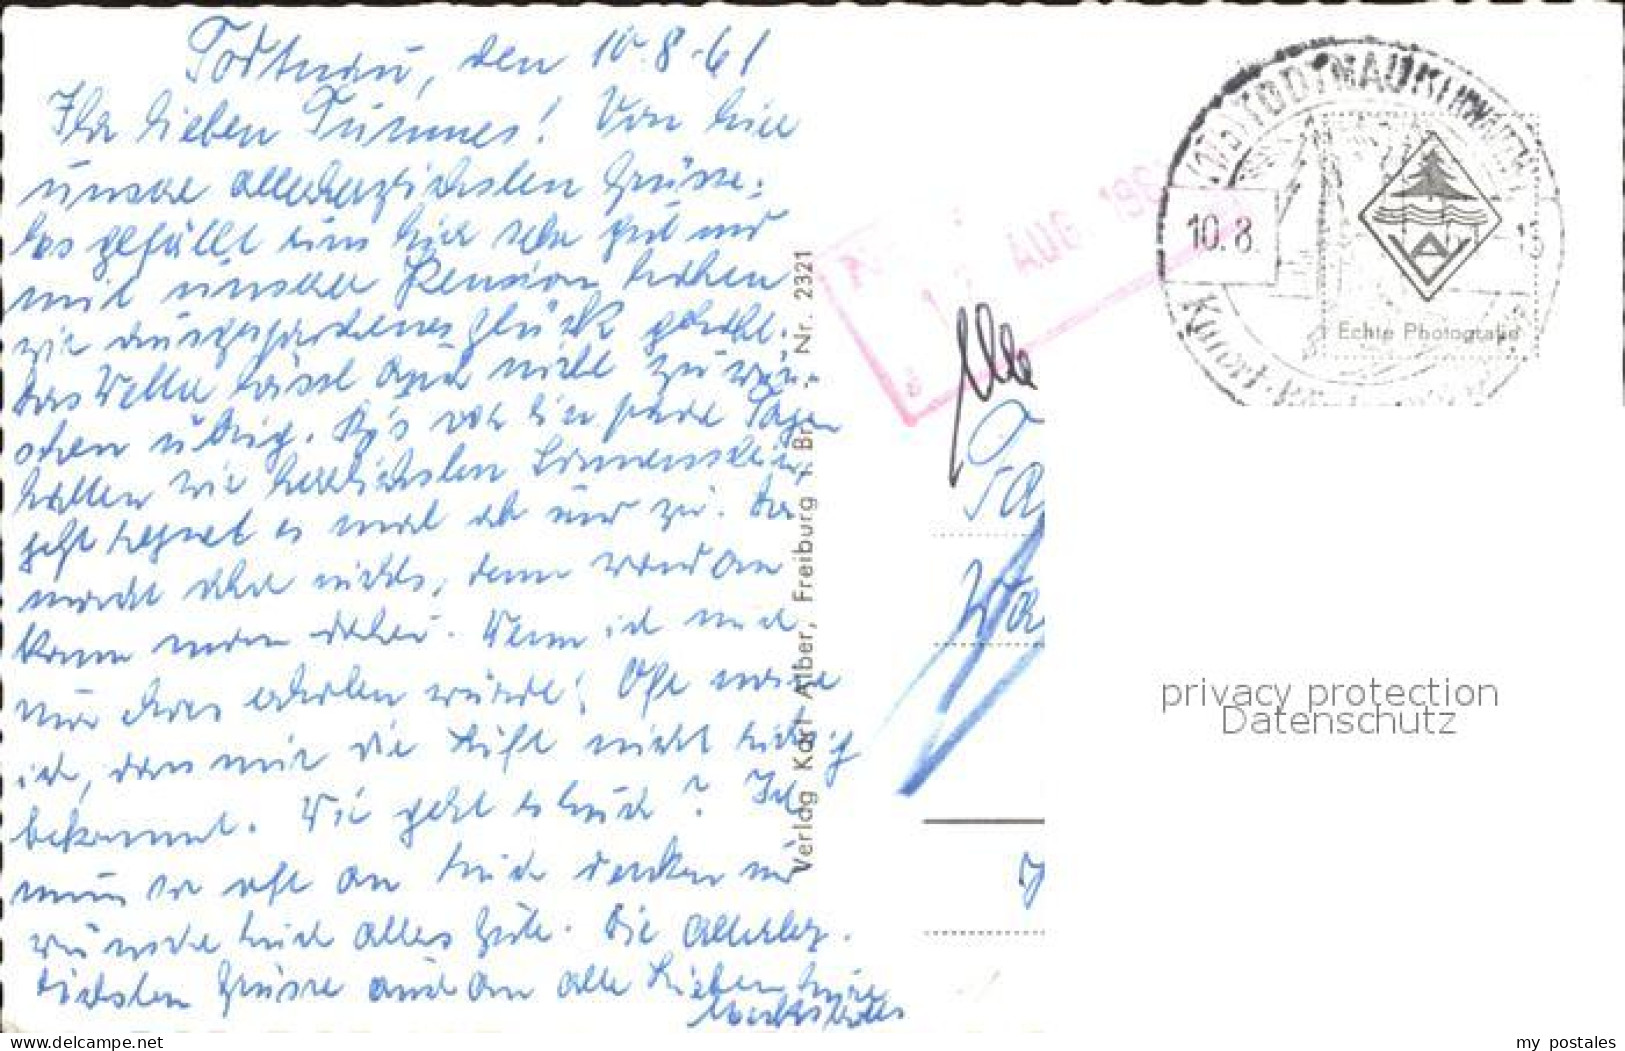 Todtnau, den 10.8.61
Ihr lieben Tümmes! Von hier
unsre allerherzlichsten Grüsse.
Es gefällt uns hier sehr gut und
mit unserer Pension haben
wir Glück gehabt.
Das Wetter lässt auch nicht zu wün-
schen übrig. Bis vor ein paar Tagen
hatten wir herrlichsten Sonnenschein,
jetzt regnet es mal ab und zu. Das
macht aber nichts, denn wandern
kann man dabei. Wenn ich mich
nur erholen würde! Oft meine
ich, dass mir die Luft nicht richtig
bekommt. Wie geht es Euch? Ich
muss so oft an Euch denken und
wünsche Euch alles Gute. Die allerherz-
lichsten Grüsse auch an alle Lieben Eure
Verlag Karl Alber, Freiburg i. Br., Nr. 2321
AUG 196
TODTNAU
10.8.
Echte Photographie
privacy protection
Datenschutz
www.delcampe.net
my_postales